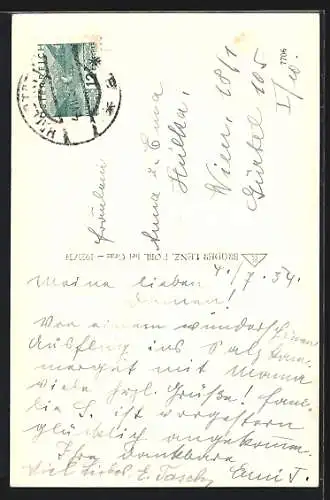 HALLSTATT
ÖSTERREICH
12
7706
Fräulein
Anna u. Ema
Hülka,
Wien, 18/1
Gürtel 105
I/10.
BRÜDER LENZ, DOBL bei Graz – 1933/34
4./7. 34.
Meine lieben
Damen!
Von einem wunderschönen
Ausflug ins Salzkam-
mergut mit Mama
viele herzl. Grüße! Fami-
lie S. ist vorgestern
glücklich angekommen.
Ihre dankbare
Viel Liebes E. Tasch Emi T.